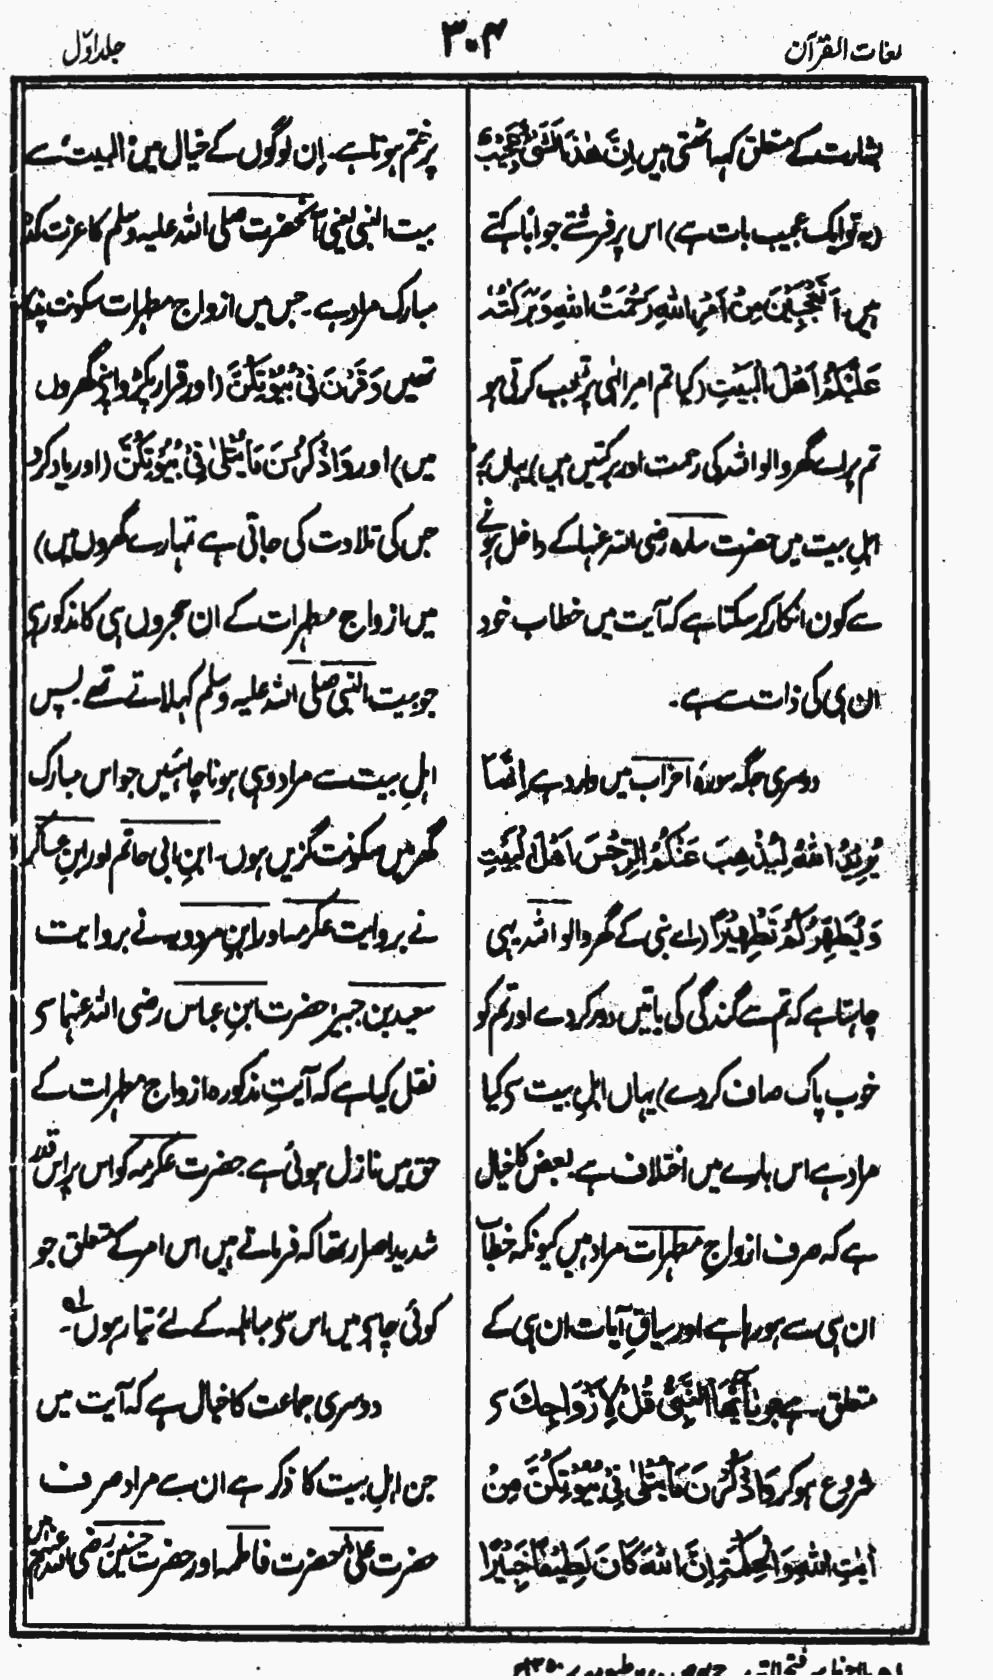 لغات القرآن
۳۰۴
جلد اوّل
بشارت کے متعلق کہہ اٹھتی ہیں اِنَّ هٰذَا لَشَیْءٌ عَجِیْبٌ
(یہ تو ایک عجیب بات ہے) اس پر فرشتے جواباً کہتے
ہیں۔ اَتَعْجَبِیْنَ مِنْ اَمْرِ اللّٰهِ رَحْمَتُ اللّٰهِ وَبَرَكٰتُهٗ
عَلَیْكُمْ اَهْلَ الْبَیْتِ (کیا تم امر الٰہی پر تعجب کرتی ہو
تم پر اے گھر والو اللہ کی رحمت اور برکتیں ہیں) یہاں پر
اہلِ بیت میں حضرت سارہ رضی اللہ عنہا کے داخل ہونے
سے کون انکار کر سکتا ہے کہ آیت میں خطاب خود
ان ہی کی ذات سے ہے۔
دوسری جگہ سورۂ احزاب میں وارد ہے اِنَّمَا
یُرِیْدُ اللّٰهُ لِیُذْهِبَ عَنْكُمُ الرِّجْسَ اَهْلَ الْبَیْتِ
وَیُطَهِّرَكُمْ تَطْهِیْرًا (اے نبی کے گھر والو اللہ یہی
چاہتا ہے کہ تم سے گندگی کی باتیں دور کردے اور تم کو
خوب پاک صاف کردے) یہاں اہلِ بیت سے کیا
مراد ہے اس بارے میں اختلاف ہے۔ بعض کا خیال
ہے کہ صرف ازواجِ مطہرات مراد ہیں کیونکہ خطاب
ان ہی سے ہو رہا ہے اور سیاقِ آیات ان ہی کے
متعلق ہے جو یٰٓاَیُّهَا النَّبِیُّ قُلْ لِاَزْوَاجِكَ سے
شروع ہو کر وَاذْكُرْنَ مَا یُتْلٰی فِیْ بُیُوْتِكُنَّ مِنْ
اٰیٰتِ اللّٰهِ وَالْحِكْمَةِ اِنَّ اللّٰهَ كَانَ لَطِیْفًا خَبِیْرًا
پر ختم ہوتا ہے۔ اِن لوگوں کے خیال میں البیت سے
بیت النبی یعنی آنحضرت صلی اللہ علیہ وسلم کا عزت کدۂ
مبارک مراد ہے۔ جس میں ازواج مطہرات سکونت پذیر
تھیں وَقَرْنَ فِیْ بُیُوْتِكُنَّ (اور قرار پکڑو اپنے گھروں
میں) اور وَاذْكُرْنَ مَا یُتْلٰی فِیْ بُیُوْتِكُنَّ (اور یاد کرو
جس کی تلاوت کی جاتی ہے تمہارے گھروں میں)
میں ازواج مطہرات کے ان حجروں ہی کا مذکور ہے
جو بیت النبی صلی اللہ علیہ وسلم کہلاتے تھے۔ پس
اہلِ بیت سے مراد وہی ہونا چاہئیں جو اس مبارک
گھر میں سکونت گزیں ہوں۔ ابنِ ابی حاتم اور ابنِ عساکر
نے بروایت عکرمہ اور ابنِ مردویہ نے بروایت
سعید بن جبیر حضرت ابنِ عباس رضی اللہ عنہما سے
نقل کیا ہے کہ آیتِ مذکورہ ازواج مطہرات کے
حق میں نازل ہوئی ہے۔ حضرت عکرمہ کو اس پر اس قدر
شدید اصرار تھا کہ فرماتے ہیں اس امر کے متعلق جو
کوئی چاہے میں اس سے مباہلہ کے لئے تیار ہوں۔ لہ
دوسری جماعت کا خیال ہے کہ آیت میں
جن اہلِ بیت کا ذکر ہے ان سے مراد صرف
حضرت علی، حضرت فاطمہ اور حضرت حسنین رضی اللہ عنہم ہیں